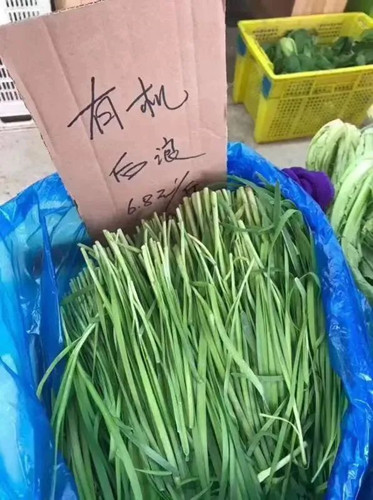 有机
白浪
6.8元/斤